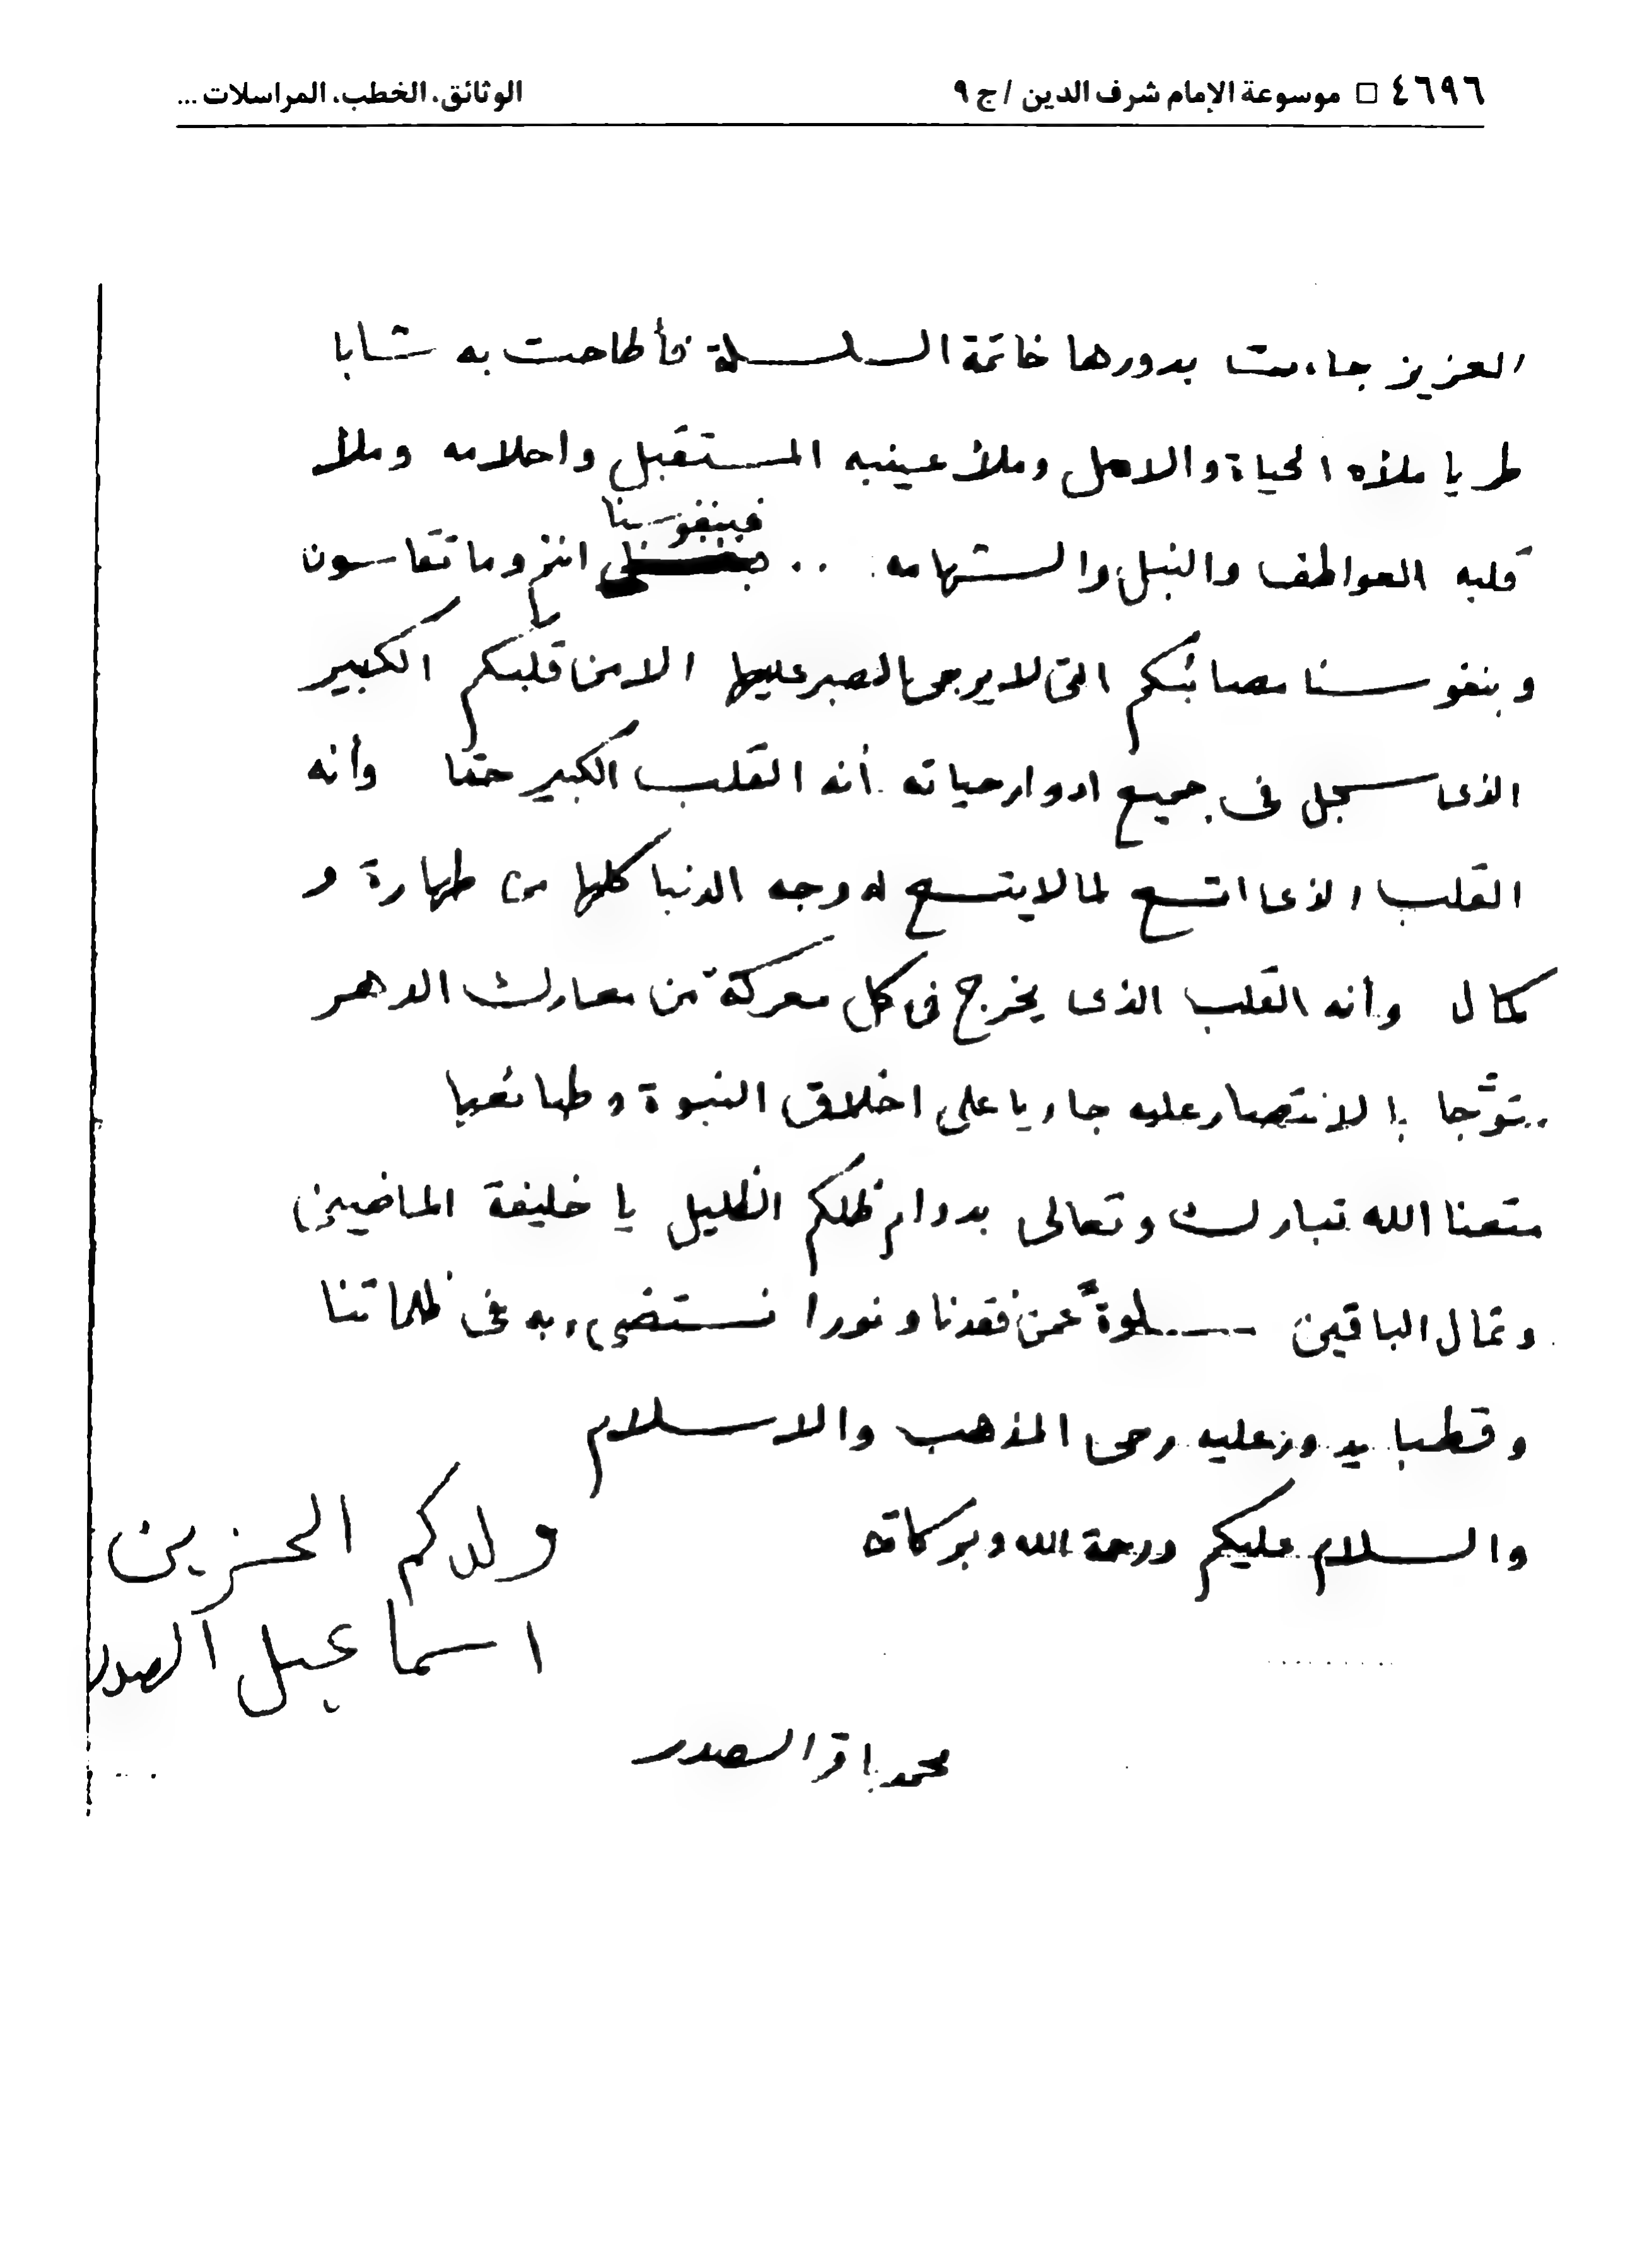 ٤٦٩٦ □ موسوعة الإمام شرف الدين / ج ٩
الوثائق، الخطب، المراسلات ...
العزيز جاءت بدورها خاتمة السلسلة فأطاحت به شابا
طريا ملأه الحياة والامل وملأ عينيه المستقبل واحلامه وملأ
قلبه العواطف والنبل والشهامه .. فبنفوسنا انتم وما تقاسون
وبنفوسنا مصائبكم التى لا يرجى الصبر عليها الا من قلبكم الكبير
الذى سجل فى جميع ادوار حياته أنه القلب الكبير حقا وأنه
القلب الذى اتسع لما لا يتسع له وجه الدنيا كلها من طهارة و
كمال وأنه القلب الذى يخرج فى كل معركة من معارك الدهر
متوّجا بالانتصار عليه جاريا على اخلاق النبوة وطبائعها
متعنا الله تبارك وتعالى بدوام ظلكم الظليل يا خليفة الماضين
وثمال الباقين سلوةً عمن فقدنا ونورا نستضىء به فى ظلماتنا
وقطبا يدور عليه رحى المذهب والاسلام
والسلام عليكم ورحمة الله وبركاته
ولدكم الحزين
اسماعيل الصدر
محمد باقر الصدر